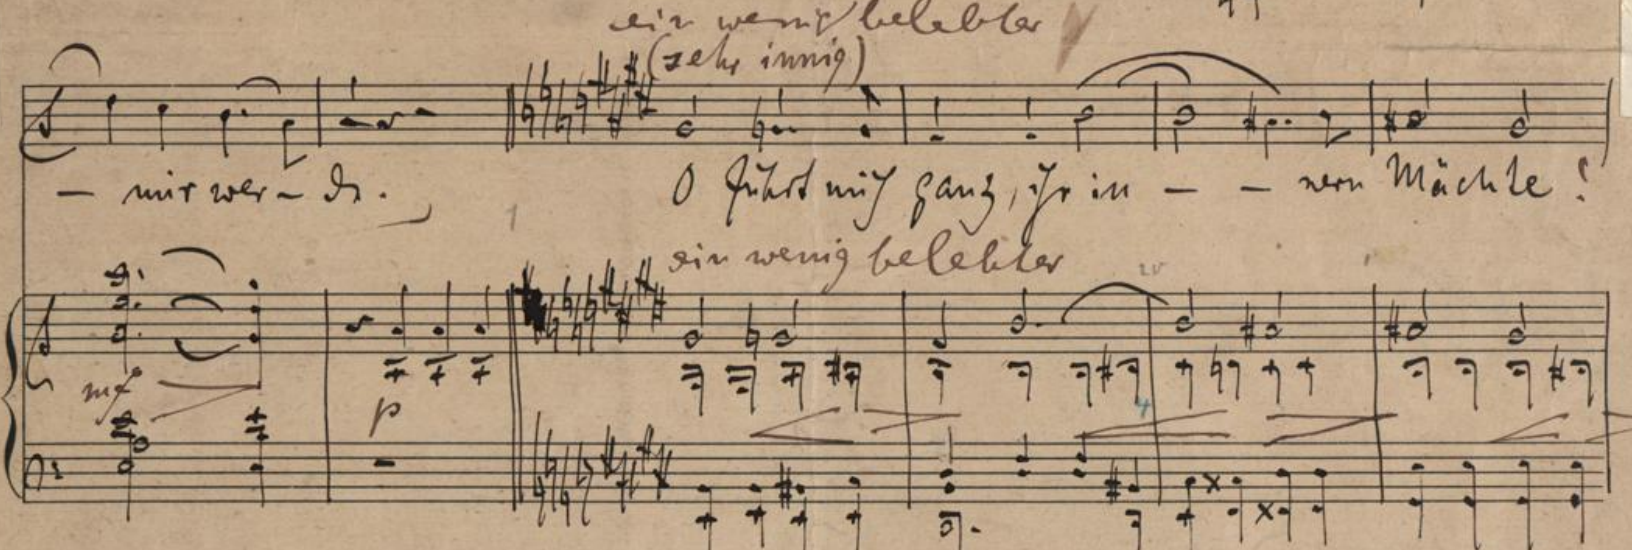 ein wenig belebter
(sehr innig)
– mir wer – de.
O führt mich ganz, ihr in – – nern Mächte!
ein wenig belebter
mf
p